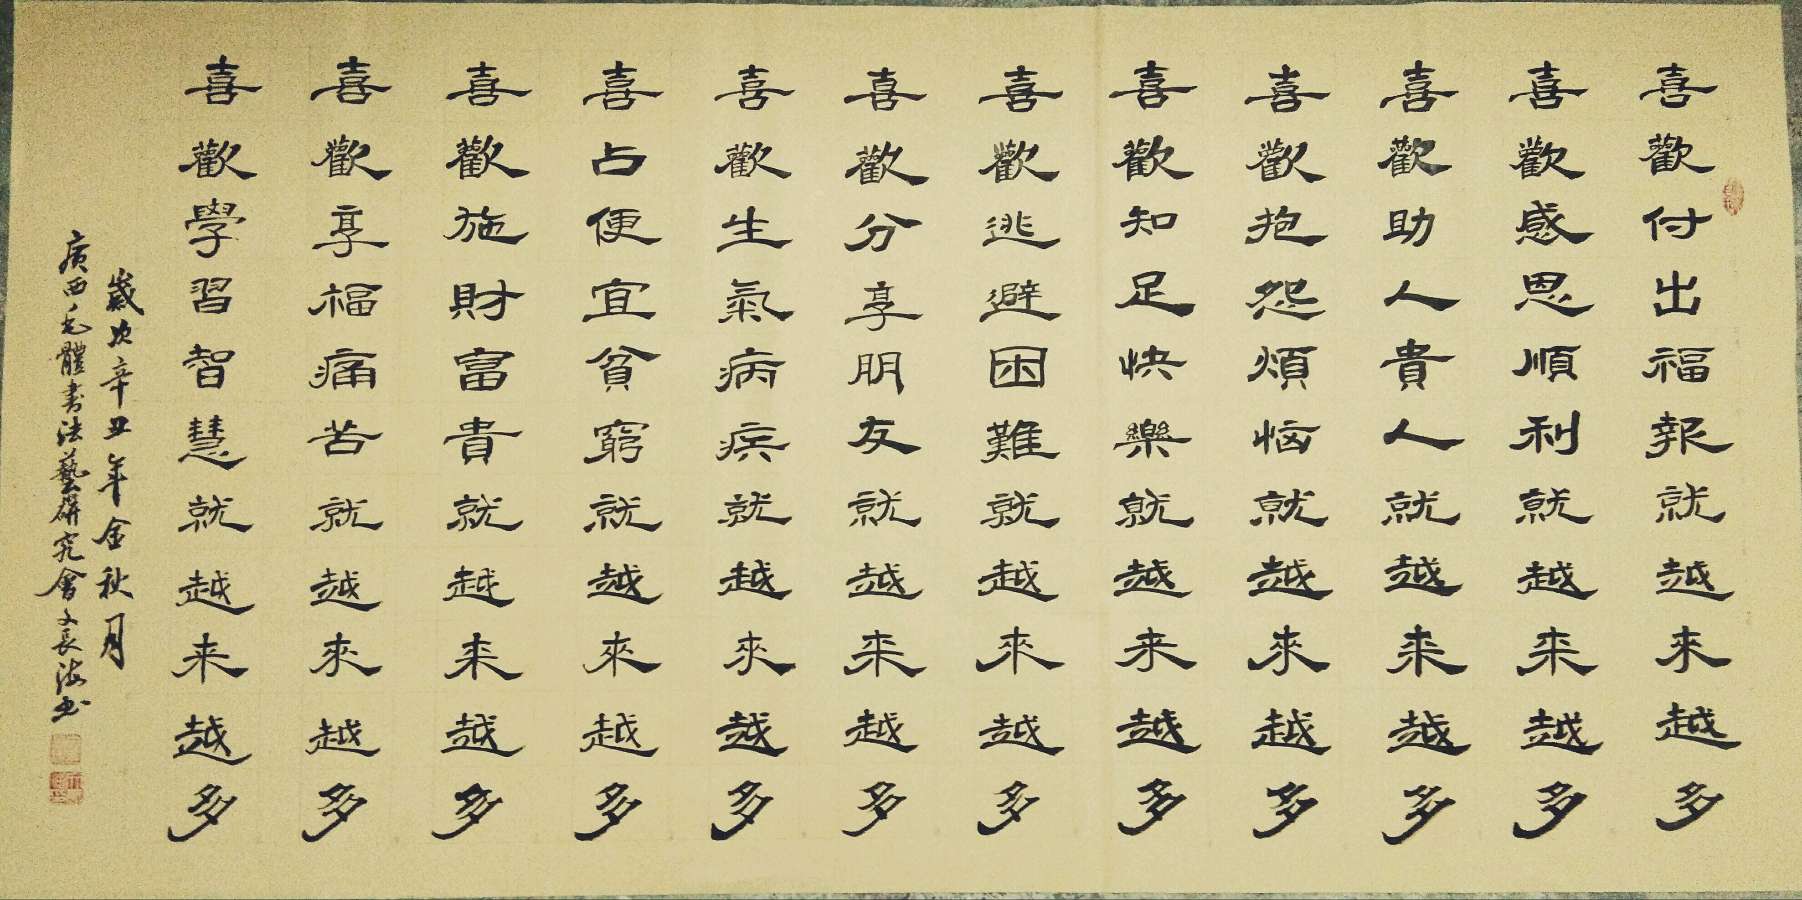 喜歡付出福報就越来越多
喜歡感恩順利就越来越多
喜歡助人貴人就越来越多
喜歡抱怨煩惱就越來越多
喜歡知足快樂就越来越多
喜歡逃避困難就越來越多
喜歡分享朋友就越来越多
喜歡生氣病疾就越來越多
喜占便宜貧窮就越來越多
喜歡施財富貴就越来越多
喜歡享福痛苦就越來越多
喜歡學習智慧就越来越多
歲次辛丑年金秋月
廣西毛體书法藝研究會文長海书